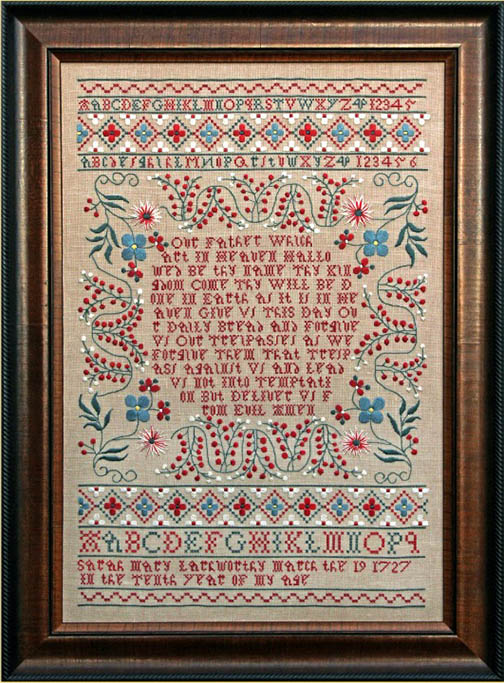 ABCDEFGHIKLMNOPQRSTVWXYZ 12345
ABCDEFGHIKLMNOPQRSTVWXYZ 123456
Our Father Which
Art In Heaven Hallo
wed Be thy name Thy Kin
gdom Come Thy Will Be D
one In Earth as It Is In He
aven Give Vs This Day Ou
r Daily Bread and Forgive
Vs Our Trespasses as We
Forgive Them That Tresp
ass against Vs and Lead
Vs not Into Temptati
on But Deliver Vs F
rom Evil Amen
AABCDEFGHIKLMNOPq
Sarah Mary Larkworthy March the 19 1727
In the Tenth Year of My Age